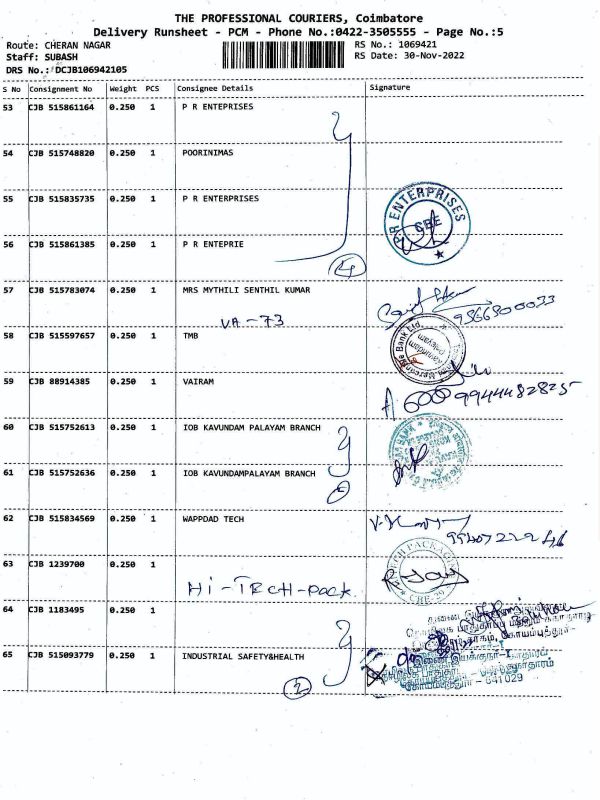 THE PROFESSIONAL COURIERS, Coimbatore
Delivery Runsheet - PCM - Phone No.:0422-3505555 - Page No.:5
Route: CHERAN NAGAR
RS No.: 1069421
Staff: SUBASH
RS Date: 30-Nov-2022
DRS No.: DCJB106942105
S No Consignment No Weight PCS Consignee Details Signature
53 CJB 515861164 0.250 1 P R ENTEPRISES
54 CJB 515748820 0.250 1 POORINIMAS
55 CJB 515835735 0.250 1 P R ENTERPRISES
PR ENTERPRISES
CBE
56 CJB 515861385 0.250 1 P R ENTEPRIE
4
57 CJB 515783074 0.250 1 MRS MYTHILI SENTHIL KUMAR
VA-73
9566300033
58 CJB 515597657 0.250 1 TMB
Mercantile Bank Ltd
59 CJB 88914385 0.250 1 VAIRAM
9944482825
60 CJB 515752613 0.250 1 IOB KAVUNDAM PALAYAM BRANCH
61 CJB 515752636 0.250 1 IOB KAVUNDAMPALAYAM BRANCH
62 CJB 515834569 0.250 1 WAPPDAD TECH
63 CJB 1239700 0.250 1
Hi-TECH-pack
CBE-29
64 CJB 1183495 0.250 1
65 CJB 515093779 0.250 1 INDUSTRIAL SAFETY&HEALTH
2
கோயம்புத்தூர் - 641029